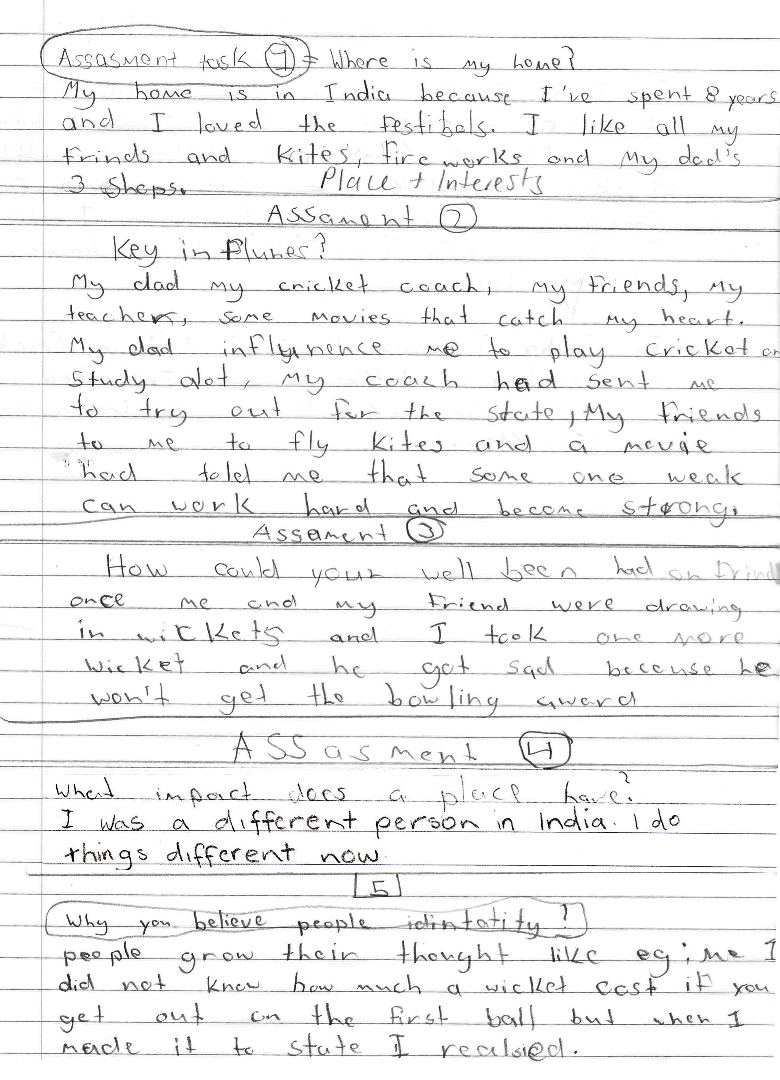 Assasment task 1 = Where is my home?
My home is in India because I've spent 8 years
and I loved the festibals. I like all my
frinds and kites, fire works and my dad's
3 Shops.
Place + Interests
Assament 2
Key in flunes?
My dad my cricket coach, my friends, my
teachers, some movies that catch my heart.
My dad influnence me to play cricket or
study alot, my coach had sent me
to try out for the state, My friends
to me to fly kites and a movie
had told me that some one weak
can work hard and become strong.
Assament 3
How could your well been had on frind
once me and my friend were drawing
in wickets and I took one more
wicket and he got sad because he
won't get the bowling award
ASSasment 4
What impact does a place have?
I was a different person in India. I do
things different now
5
Why you believe people idintatity?
people grow their thought like eg; me I
did not know how much a wicket cost if you
get out on the first ball but when I
made it to state I realsied.